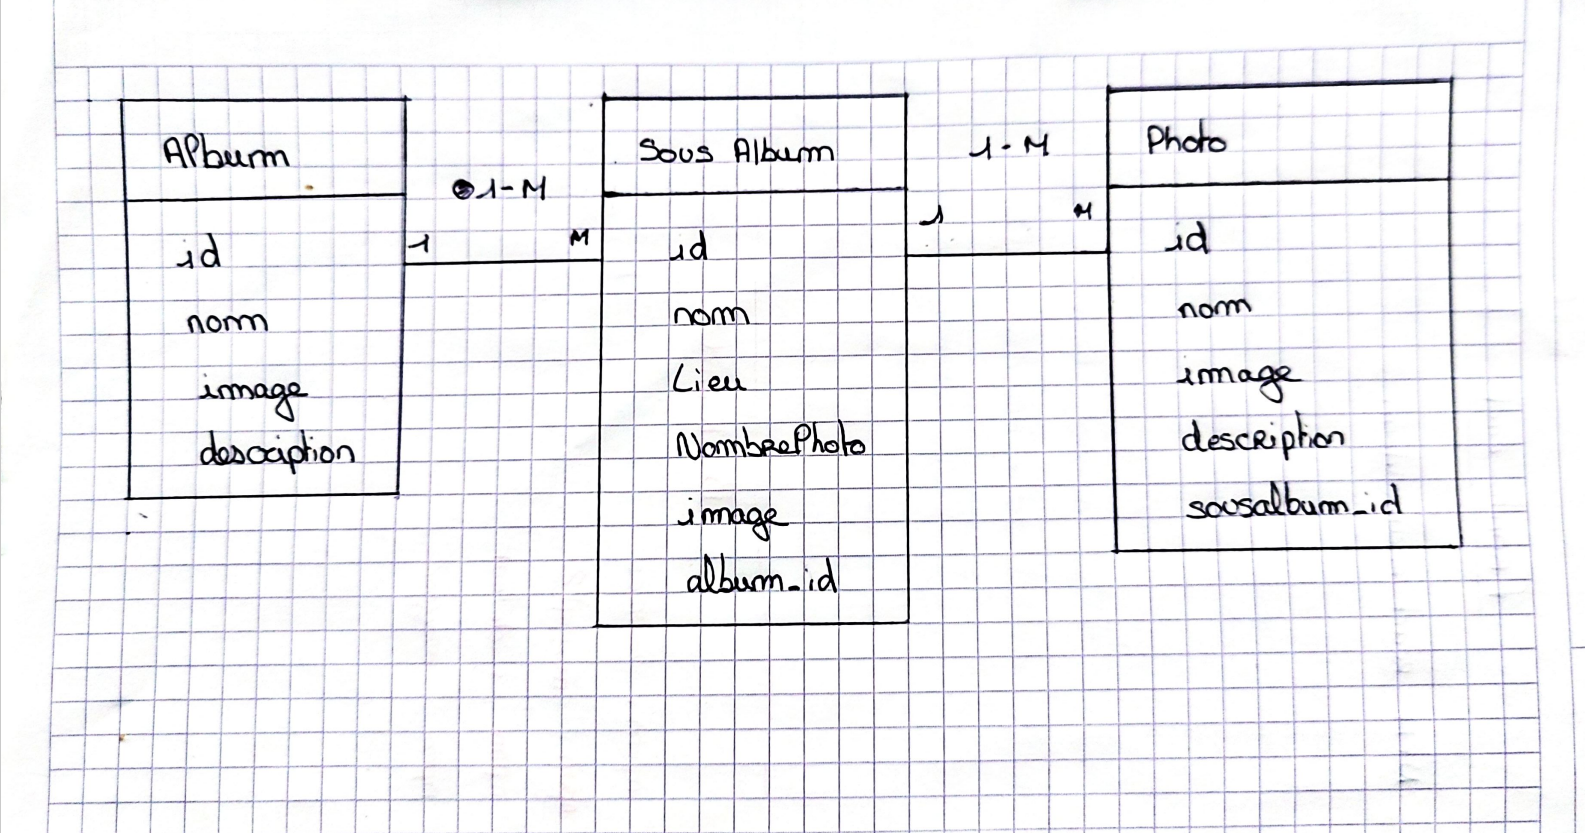 Album
id
nom
image
description
1-M
1 M
Sous Album
id
nom
Lieu
NombrePhoto
image
album_id
1-M
1 M
Photo
id
nom
image
description
sousalbum_id